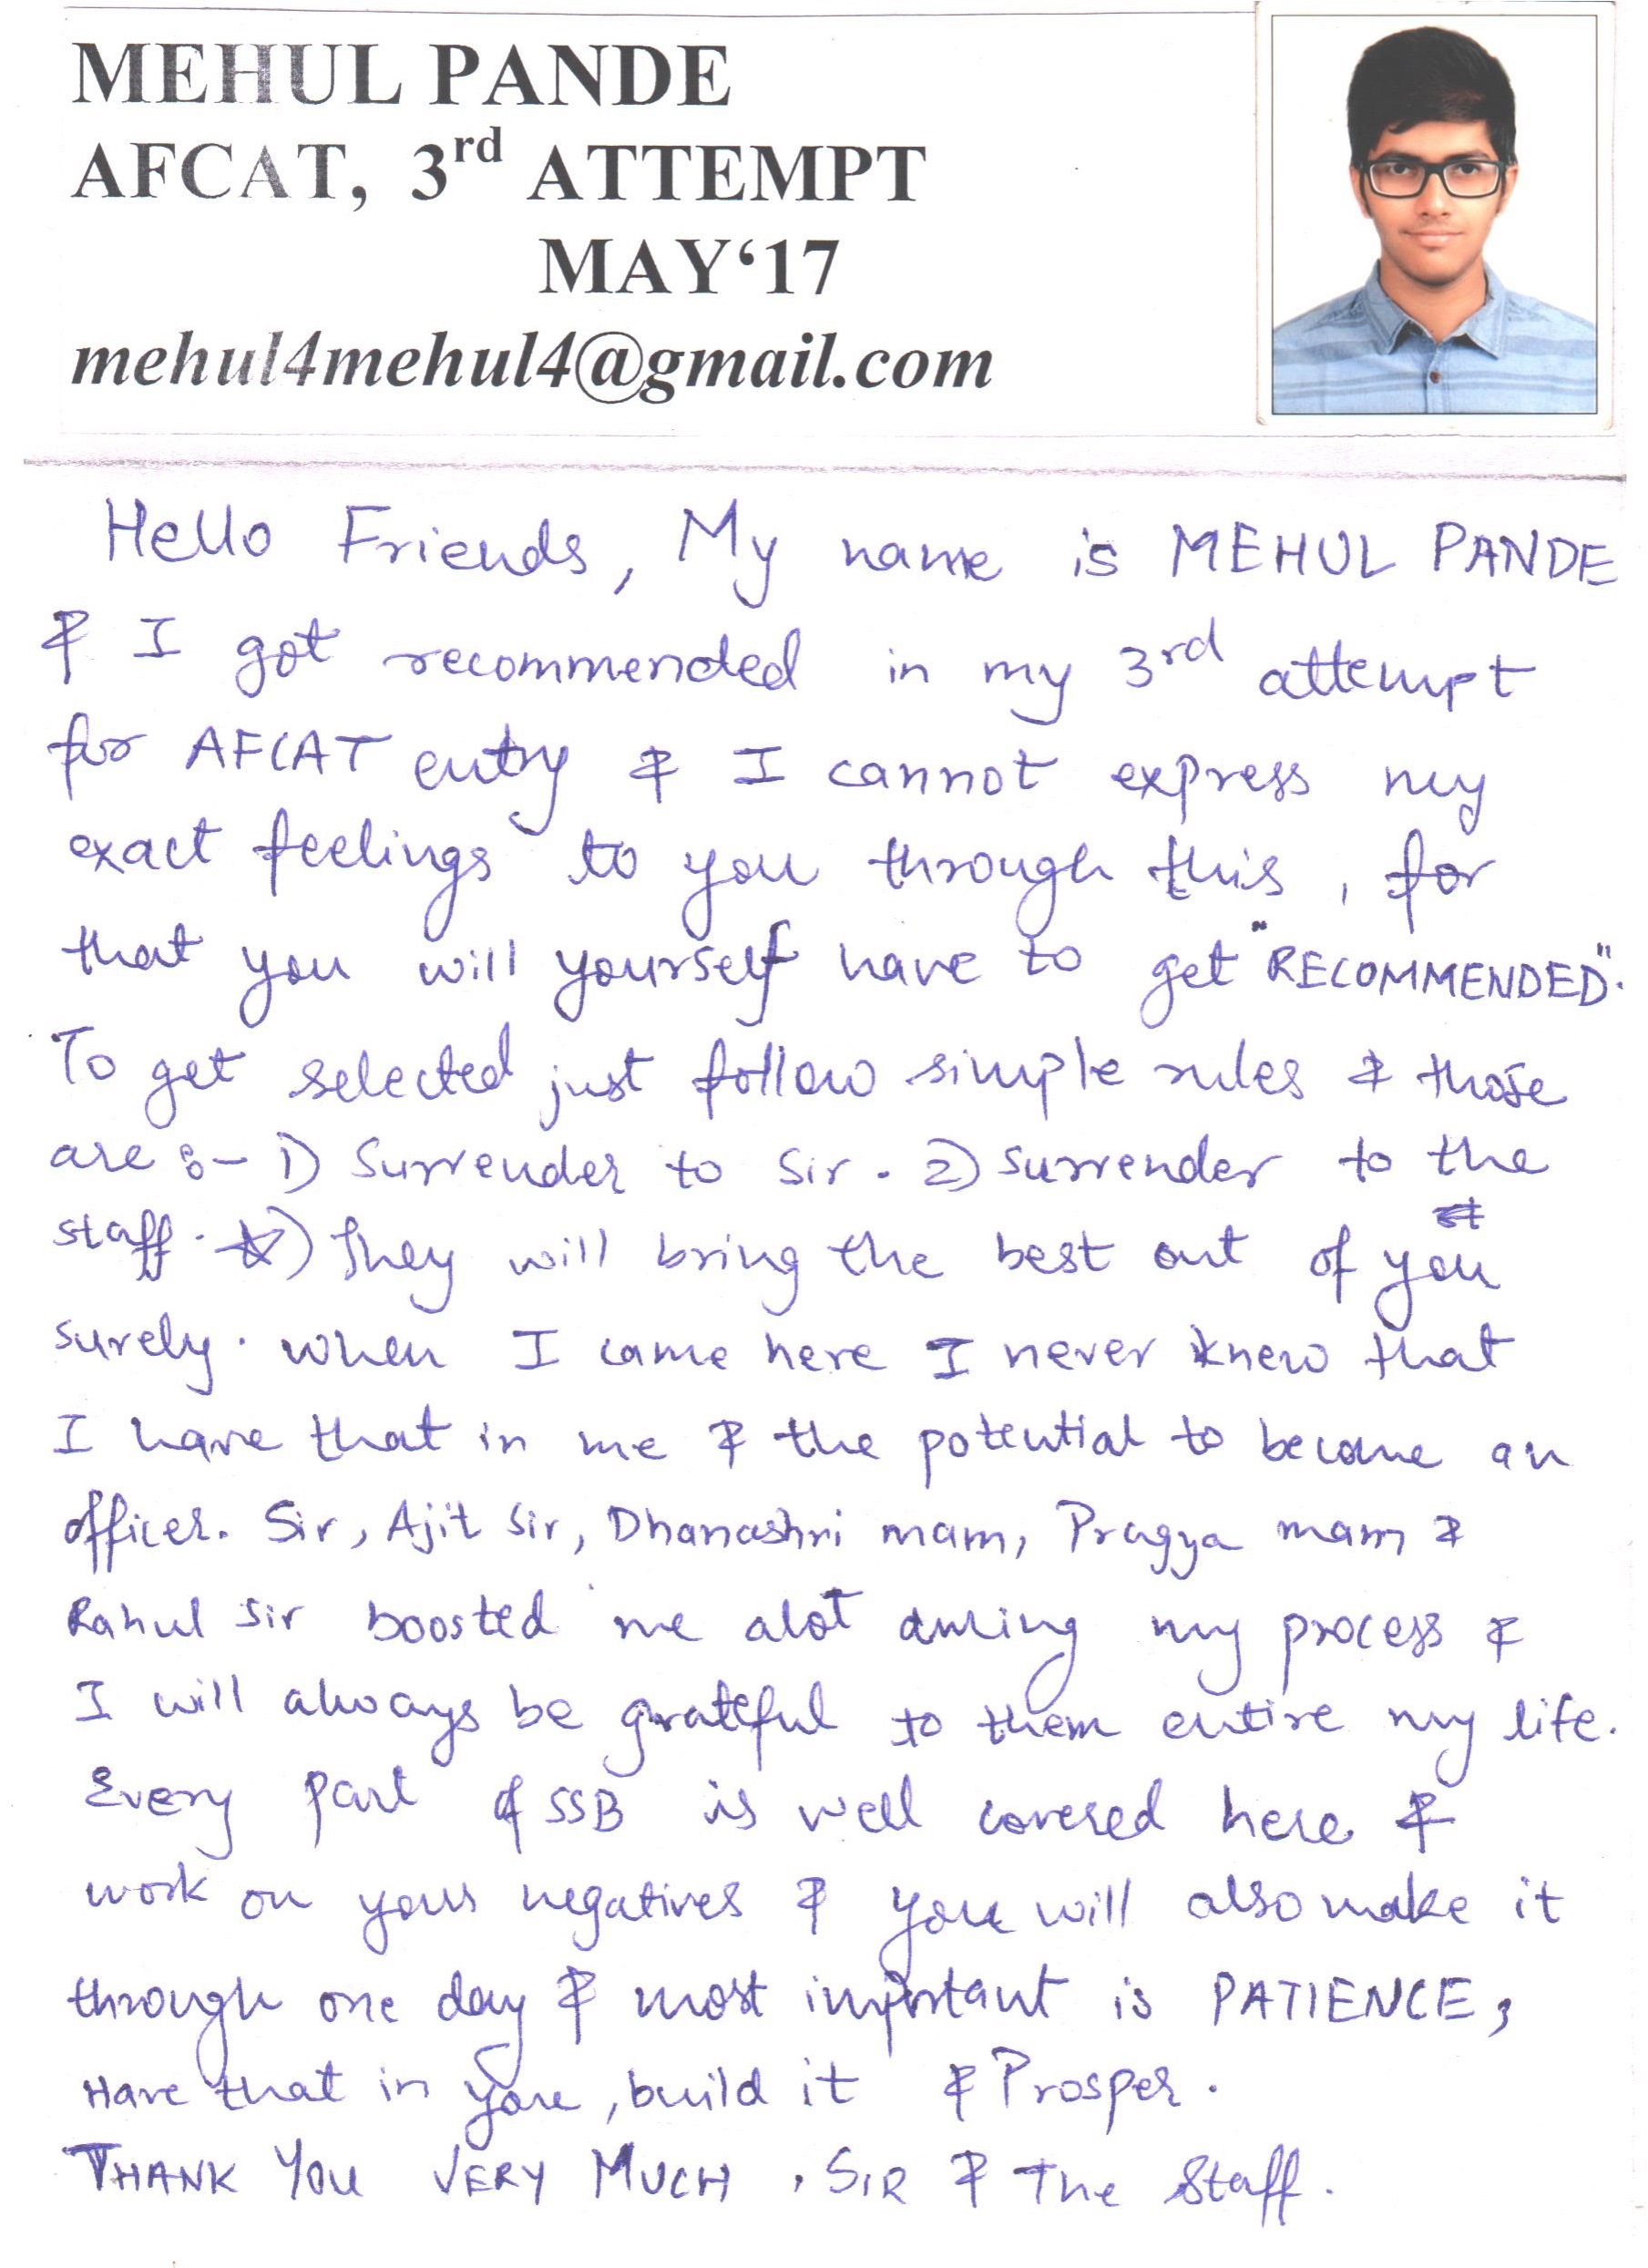 MEHUL PANDE
AFCAT, 3rd ATTEMPT
MAY‘17
mehul4mehul4@gmail.com
Hello Friends, My name is MEHUL PANDE
& I got recommended in my 3rd attempt
for AFCAT entry & I cannot express my
exact feelings to you through this, for
that you will yourself have to get "RECOMMENDED".
To get selected just follow simple rules & those
are :- 1) Surrender to Sir. 2) surrender to the
staff. ☆) They will bring the best out of you
surely. when I came here I never knew that
I have that in me & the potential to become an
officer. Sir, Ajit Sir, Dhanashri mam, Pragya mam &
Rahul Sir boosted me alot during my process &
I will always be grateful to them entire my life.
Every part of SSB is well covered here &
work on your negatives & you will also make it
through one day & most important is PATIENCE,
Have that in you, build it & Prosper.
THANK YOU VERY MUCH, SIR & The Staff.